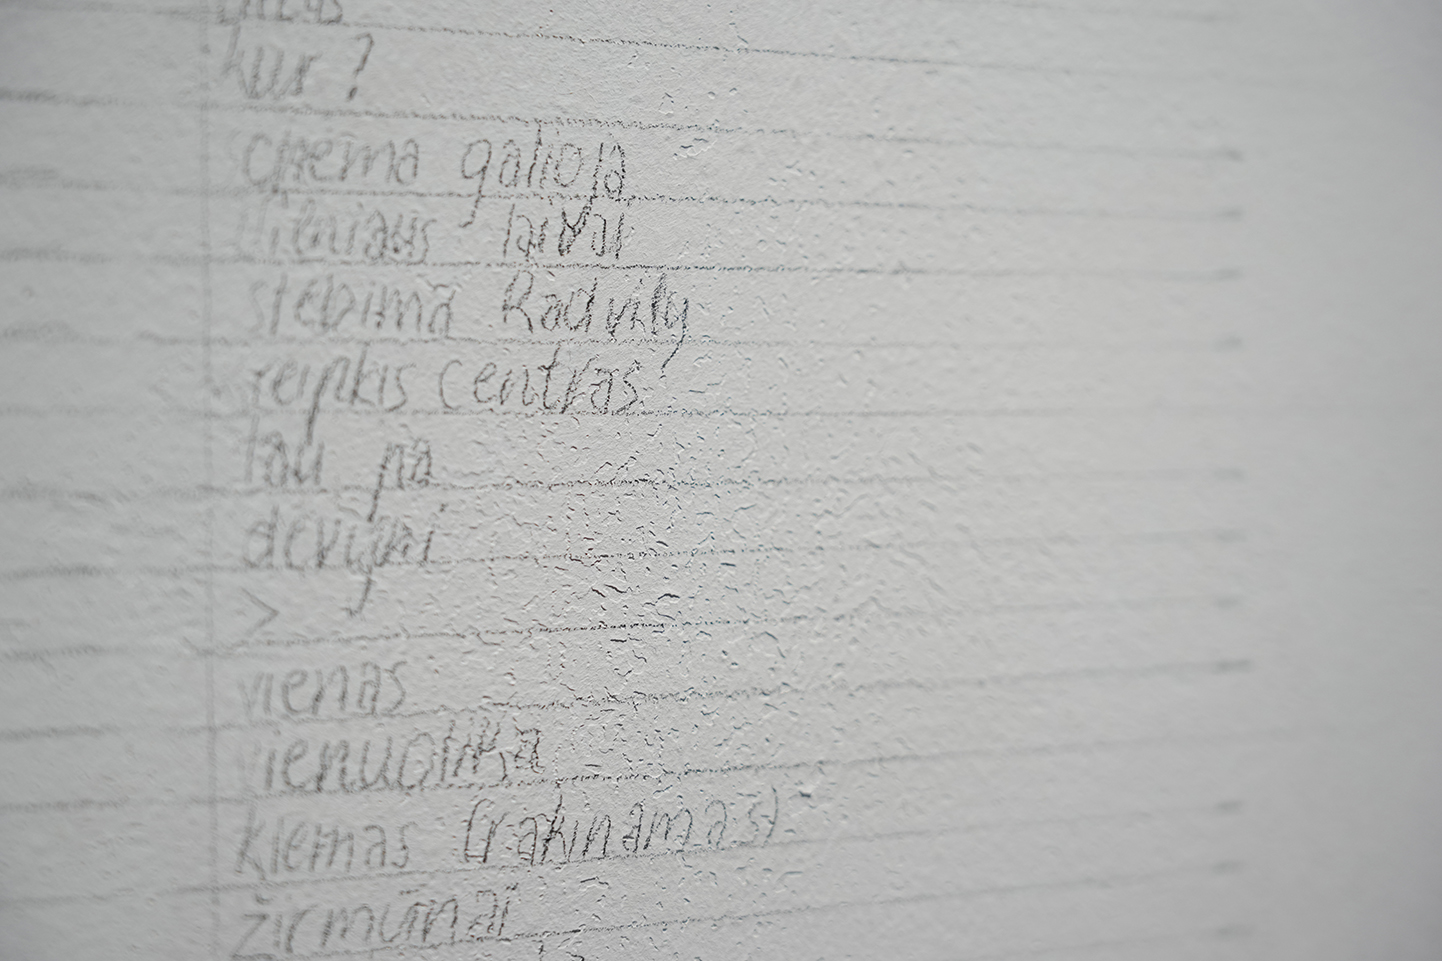 kur?
chema galioja
Vilniaus laivai
stebima Radvilų
reipkis centras
tau pa
devyni
>
vienas
vienuolika
kiemas (rakinamas)
žirmūnai